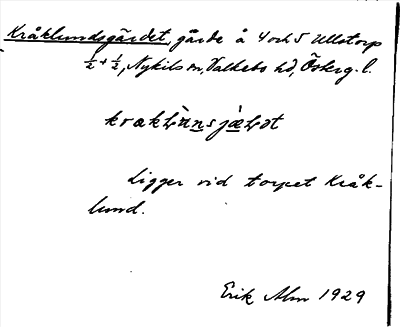 Kråklundsgärdet, gärde å 4 och 5 Ullstorp
½ + ½, Nykils sn, Valkebo hd, Österg. l.
Ligger vid torpet Kråk-
lund.
Erik Alm 1929